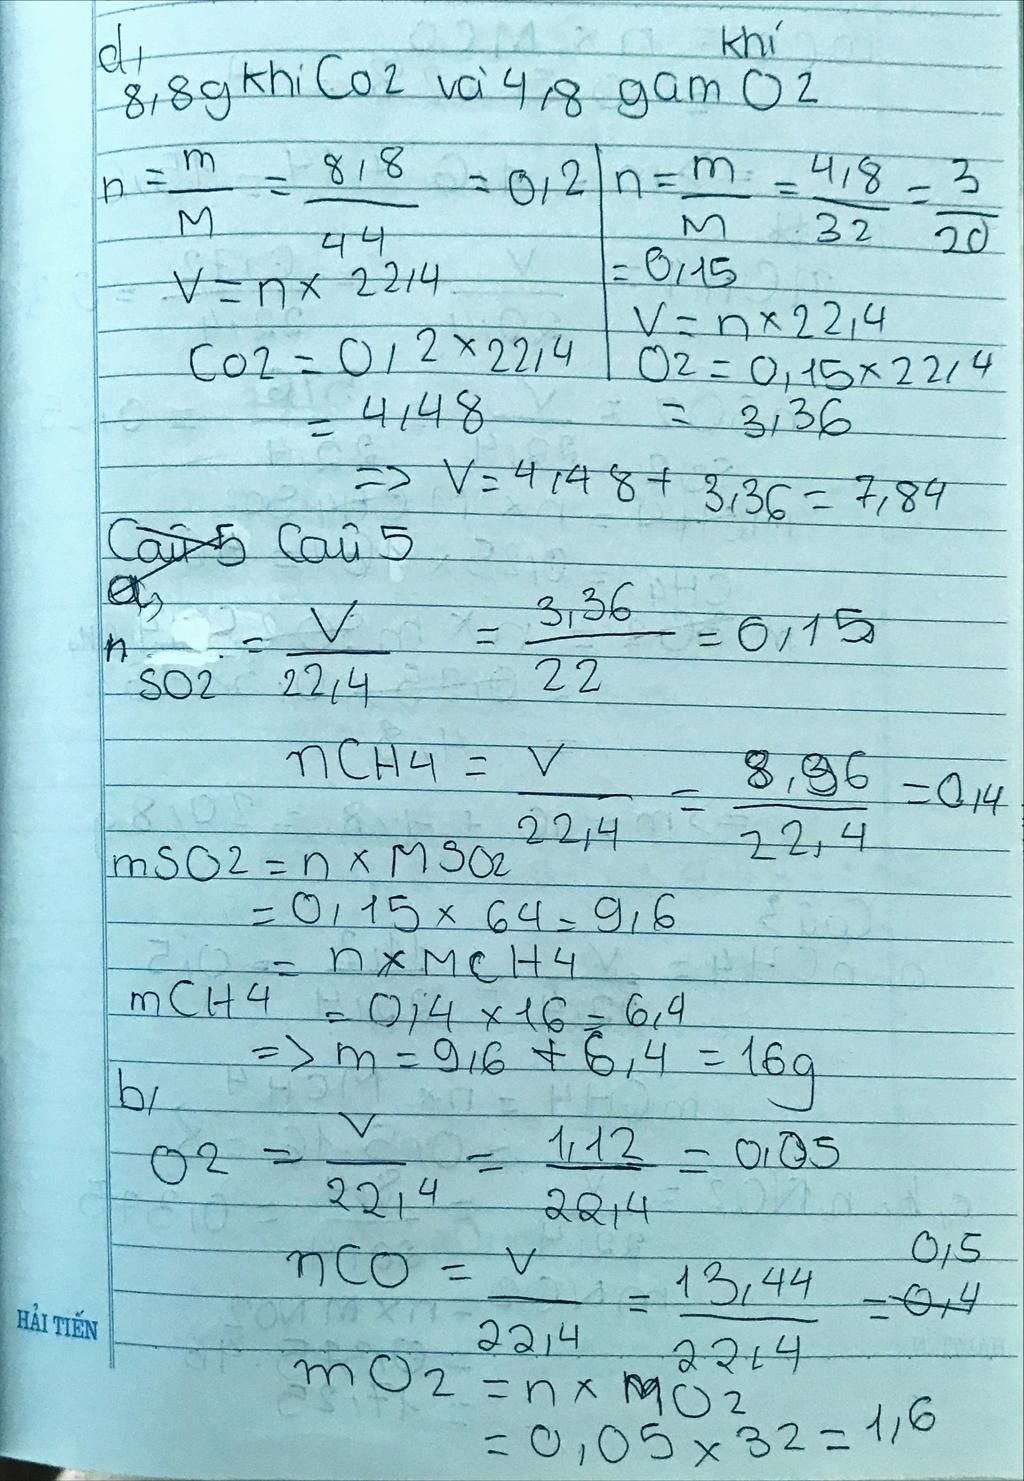 d,
khí
8,8g khí Co2 và 4,8 gam O2
n = m/M = 8,8/44 = 0,2
V = n x 22,4
Co2 = 0,2 x 22,4
= 4,48
n = m/M = 4,8/32 = 3/20
= 0,15
V = n x 22,4
O2 = 0,15 x 22,4
= 3,36
=> V = 4,48 + 3,36 = 7,84
Câu 5 Câu 5
a,
n SO2 = V/22,4 = 3,36/22 = 0,15
nCH4 = V/22,4 = 8,96/22,4 = 0,4
mSO2 = n x MSO2
= 0,15 x 64 = 9,6
= n x MCH4
mCH4 = 0,4 x 16 = 6,4
=> m = 9,6 + 6,4 = 16g
b,
O2 = V/22,4 = 1,12/22,4 = 0,05
0,5
nCO = V/22,4 = 13,44/22,4 = 0,4
HẢI TIẾN
mO2 = n x MO2
= 0,05 x 32 = 1,6